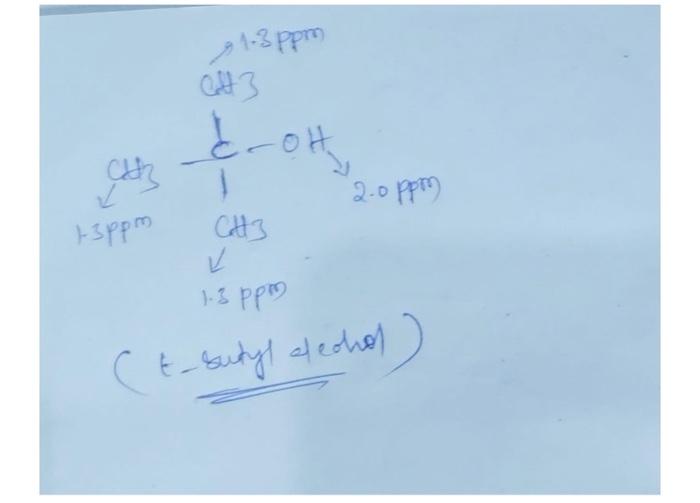 1.3 ppm
CH3
CH3 - C - OH
2.0 ppm
1.3 ppm
CH3
1.3 ppm
(t-butyl alcohol)